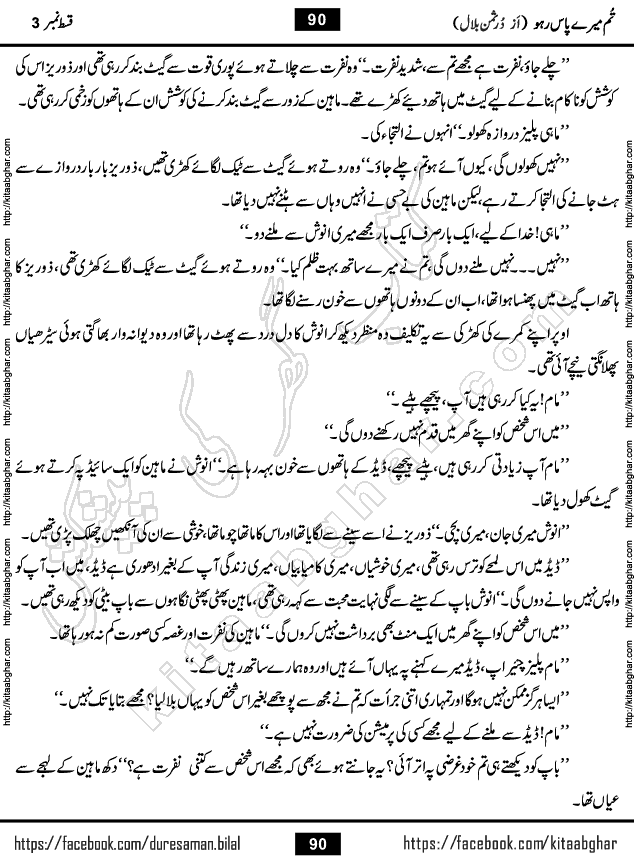 تُم میرے پاس رہو (از دُرِثمن بلال)
90
قسط نمبر 3
’’چلے جاؤ، نفرت ہے مجھے تم سے، شدید نفرت۔‘‘ وہ نفرت سے چلاتے ہوئے پوری قوت سے گیٹ بند کر رہی تھی اور ذوریز اس کی
کوشش کو ناکام بنانے کے لیے گیٹ میں ہاتھ دیئے کھڑے تھے۔ ماہین کے زور سے گیٹ بند کرنے کی کوشش ان کے ہاتھوں کو زخمی کر رہی تھی۔
’’ماہی پلیز دروازہ کھولو۔‘‘ انہوں نے التجاء کی۔
’’نہیں کھولوں گی، کیوں آئے ہو تم، چلے جاؤ۔‘‘ وہ روتے ہوئے گیٹ سے ٹیک لگائے کھڑی تھیں، ذوریز بار بار دروازے سے
ہٹ جانے کی التجا کرتے رہے، لیکن ماہین کی بے حسی نے انہیں وہاں سے ہٹنے نہیں دیا تھا۔
’’ماہی! خدا کے لیے، ایک بار صرف ایک بار مجھے میری انوش سے ملنے دو۔‘‘
’’نہیں۔۔۔ نہیں ملنے دوں گی، تم نے میرے ساتھ بہت ظلم کیا۔‘‘ وہ روتے ہوئے گیٹ سے ٹیک لگائے کھڑی تھی، ذوریز کا
ہاتھ اب گیٹ میں پھنسا ہوا تھا، اب ان کے دونوں ہاتھوں سے خون رسنے لگا تھا۔
اوپر اپنے کمرے کی کھڑکی سے یہ تکلیف دہ منظر دیکھ کر انوش کا دل درد سے پھٹ رہا تھا اور وہ دیوانہ وار بھاگتی ہوئی سیڑھیاں
پھلانگتی نیچے آئی تھی۔
’’مام! یہ کیا کر رہی ہیں آپ، پیچھے ہٹیے۔‘‘
’’میں اس شخص کو اپنے گھر میں قدم نہیں رکھنے دوں گی۔‘‘
’’مام آپ زیادتی کر رہی ہیں، ہٹیے پیچھے، ڈیڈ کے ہاتھوں سے خون بہہ رہا ہے۔‘‘ انوش نے ماہین کو ایک سائیڈ پہ کرتے ہوئے
گیٹ کھول دیا تھا۔
’’انوش میری جان، میری بچی۔‘‘ ذوریز نے اسے سینے سے لگایا تھا اور اس کا ماتھا چوما تھا، خوشی سے ان کی آنکھیں چھلک پڑی تھیں۔
’’ڈیڈ میں اس لمحے کو ترس رہی تھی، میری خوشیاں، میری کامیابیاں، میری زندگی آپ کے بغیر ادھوری ہے ڈیڈ، میں اب آپ کو
واپس نہیں جانے دوں گی۔‘‘ انوش باپ کے سینے سے لگی نہایت محبت سے کہہ رہی تھی، ماہین پھٹی پھٹی نگاہوں سے باپ بیٹی کو دیکھ رہی تھیں۔
’’میں اس شخص کو اپنے گھر میں ایک منٹ بھی برداشت نہیں کروں گی۔‘‘ ماہین کی نفرت اور غصہ کسی صورت کم نہ ہو رہا تھا۔
’’مام پلیز چیئر اپ، ڈیڈ میرے کہنے پہ یہاں آئے ہیں اور وہ ہمارے ساتھ رہیں گے۔‘‘
’’ایسا ہرگز ممکن نہیں ہوگا اور تمہاری اتنی جرأت کہ تم نے مجھ سے پوچھے بغیر اس شخص کو یہاں بلا لیا؟ مجھے بتایا تک نہیں۔‘‘
’’مام! ڈیڈ سے ملنے کے لیے مجھے کسی کی پرمیشن کی ضرورت نہیں ہے۔‘‘
’’باپ کو دیکھتے ہی تم خود غرضی پہ اتر آئی؟ یہ جانتے ہوئے بھی کہ مجھے اس شخص سے کتنی نفرت ہے؟‘‘ دکھ ماہین کے لہجے سے
عیاں تھا۔
کتاب گھر کی پیشکش
kitaabghar.com
http://kitaabghar.com
http://kitaabghar.com
http://kitaabghar.com
http://kitaabghar.com
http://kitaabghar.com
http://kitaabghar.com
http://kitaabghar.com
http://kitaabghar.com
http://kitaabghar.com
http://kitaabghar.com
http://kitaabghar.com
http://kitaabghar.com
https://facebook.com/duresaman.bilal
90
https://facebook.com/kitaabghar